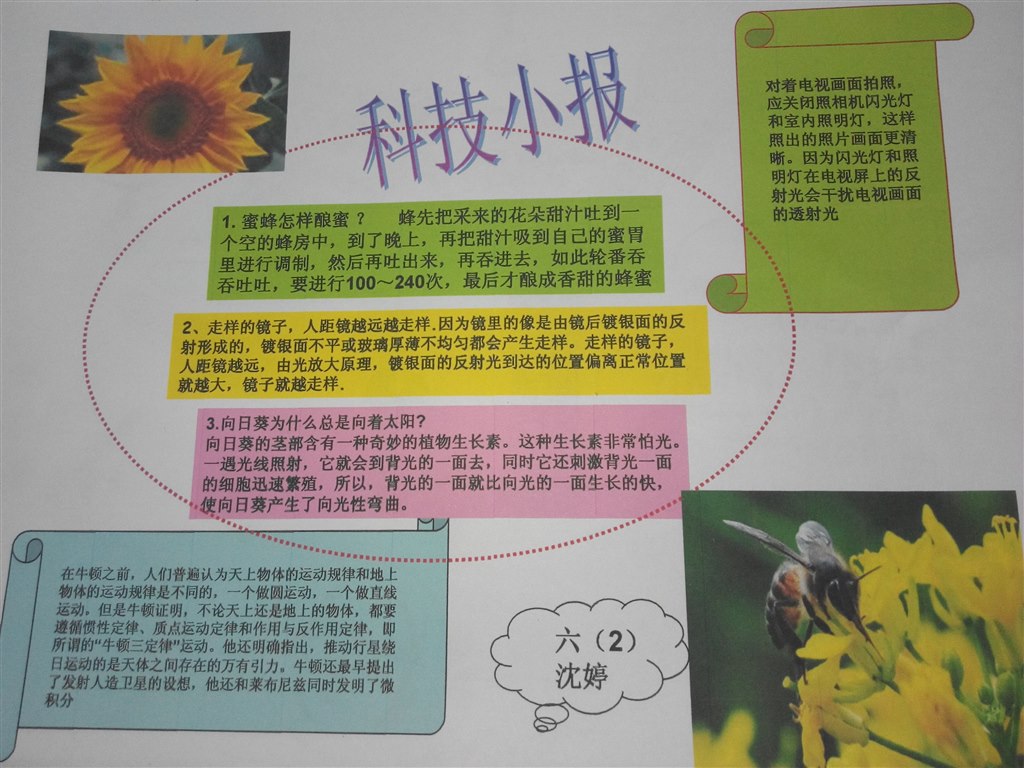 科技小报
对着电视画面拍照，
应关闭照相机闪光灯
和室内照明灯，这样
照出的照片画面更清
晰。因为闪光灯和照
明灯在电视屏上的反
射光会干扰电视画面
的透射光
1. 蜜蜂怎样酿蜜？ 蜂先把采来的花朵甜汁吐到一
个空的蜂房中，到了晚上，再把甜汁吸到自己的蜜胃
里进行调制，然后再吐出来，再吞进去，如此轮番吞
吞吐吐，要进行100～240次，最后才酿成香甜的蜂蜜
2、走样的镜子，人距镜越远越走样.因为镜里的像是由镜后镀银面的反
射形成的，镀银面不平或玻璃厚薄不均匀都会产生走样。走样的镜子，
人距镜越远，由光放大原理，镀银面的反射光到达的位置偏离正常位置
就越大，镜子就越走样.
3.向日葵为什么总是向着太阳?
向日葵的茎部含有一种奇妙的植物生长素。这种生长素非常怕光。
一遇光线照射，它就会到背光的一面去，同时它还刺激背光一面
的细胞迅速繁殖，所以，背光的一面就比向光的一面生长的快，
使向日葵产生了向光性弯曲。
在牛顿之前，人们普遍认为天上物体的运动规律和地上
物体的运动规律是不同的，一个做圆运动，一个做直线
运动。但是牛顿证明，不论天上还是地上的物体，都要
遵循惯性定律、质点运动定律和作用与反作用定律，即
所谓的“牛顿三定律”运动。他还明确指出，推动行星绕
日运动的是天体之间存在的万有引力。牛顿还最早提出
了发射人造卫星的设想，他还和莱布尼兹同时发明了微
积分
六（2）
沈婷